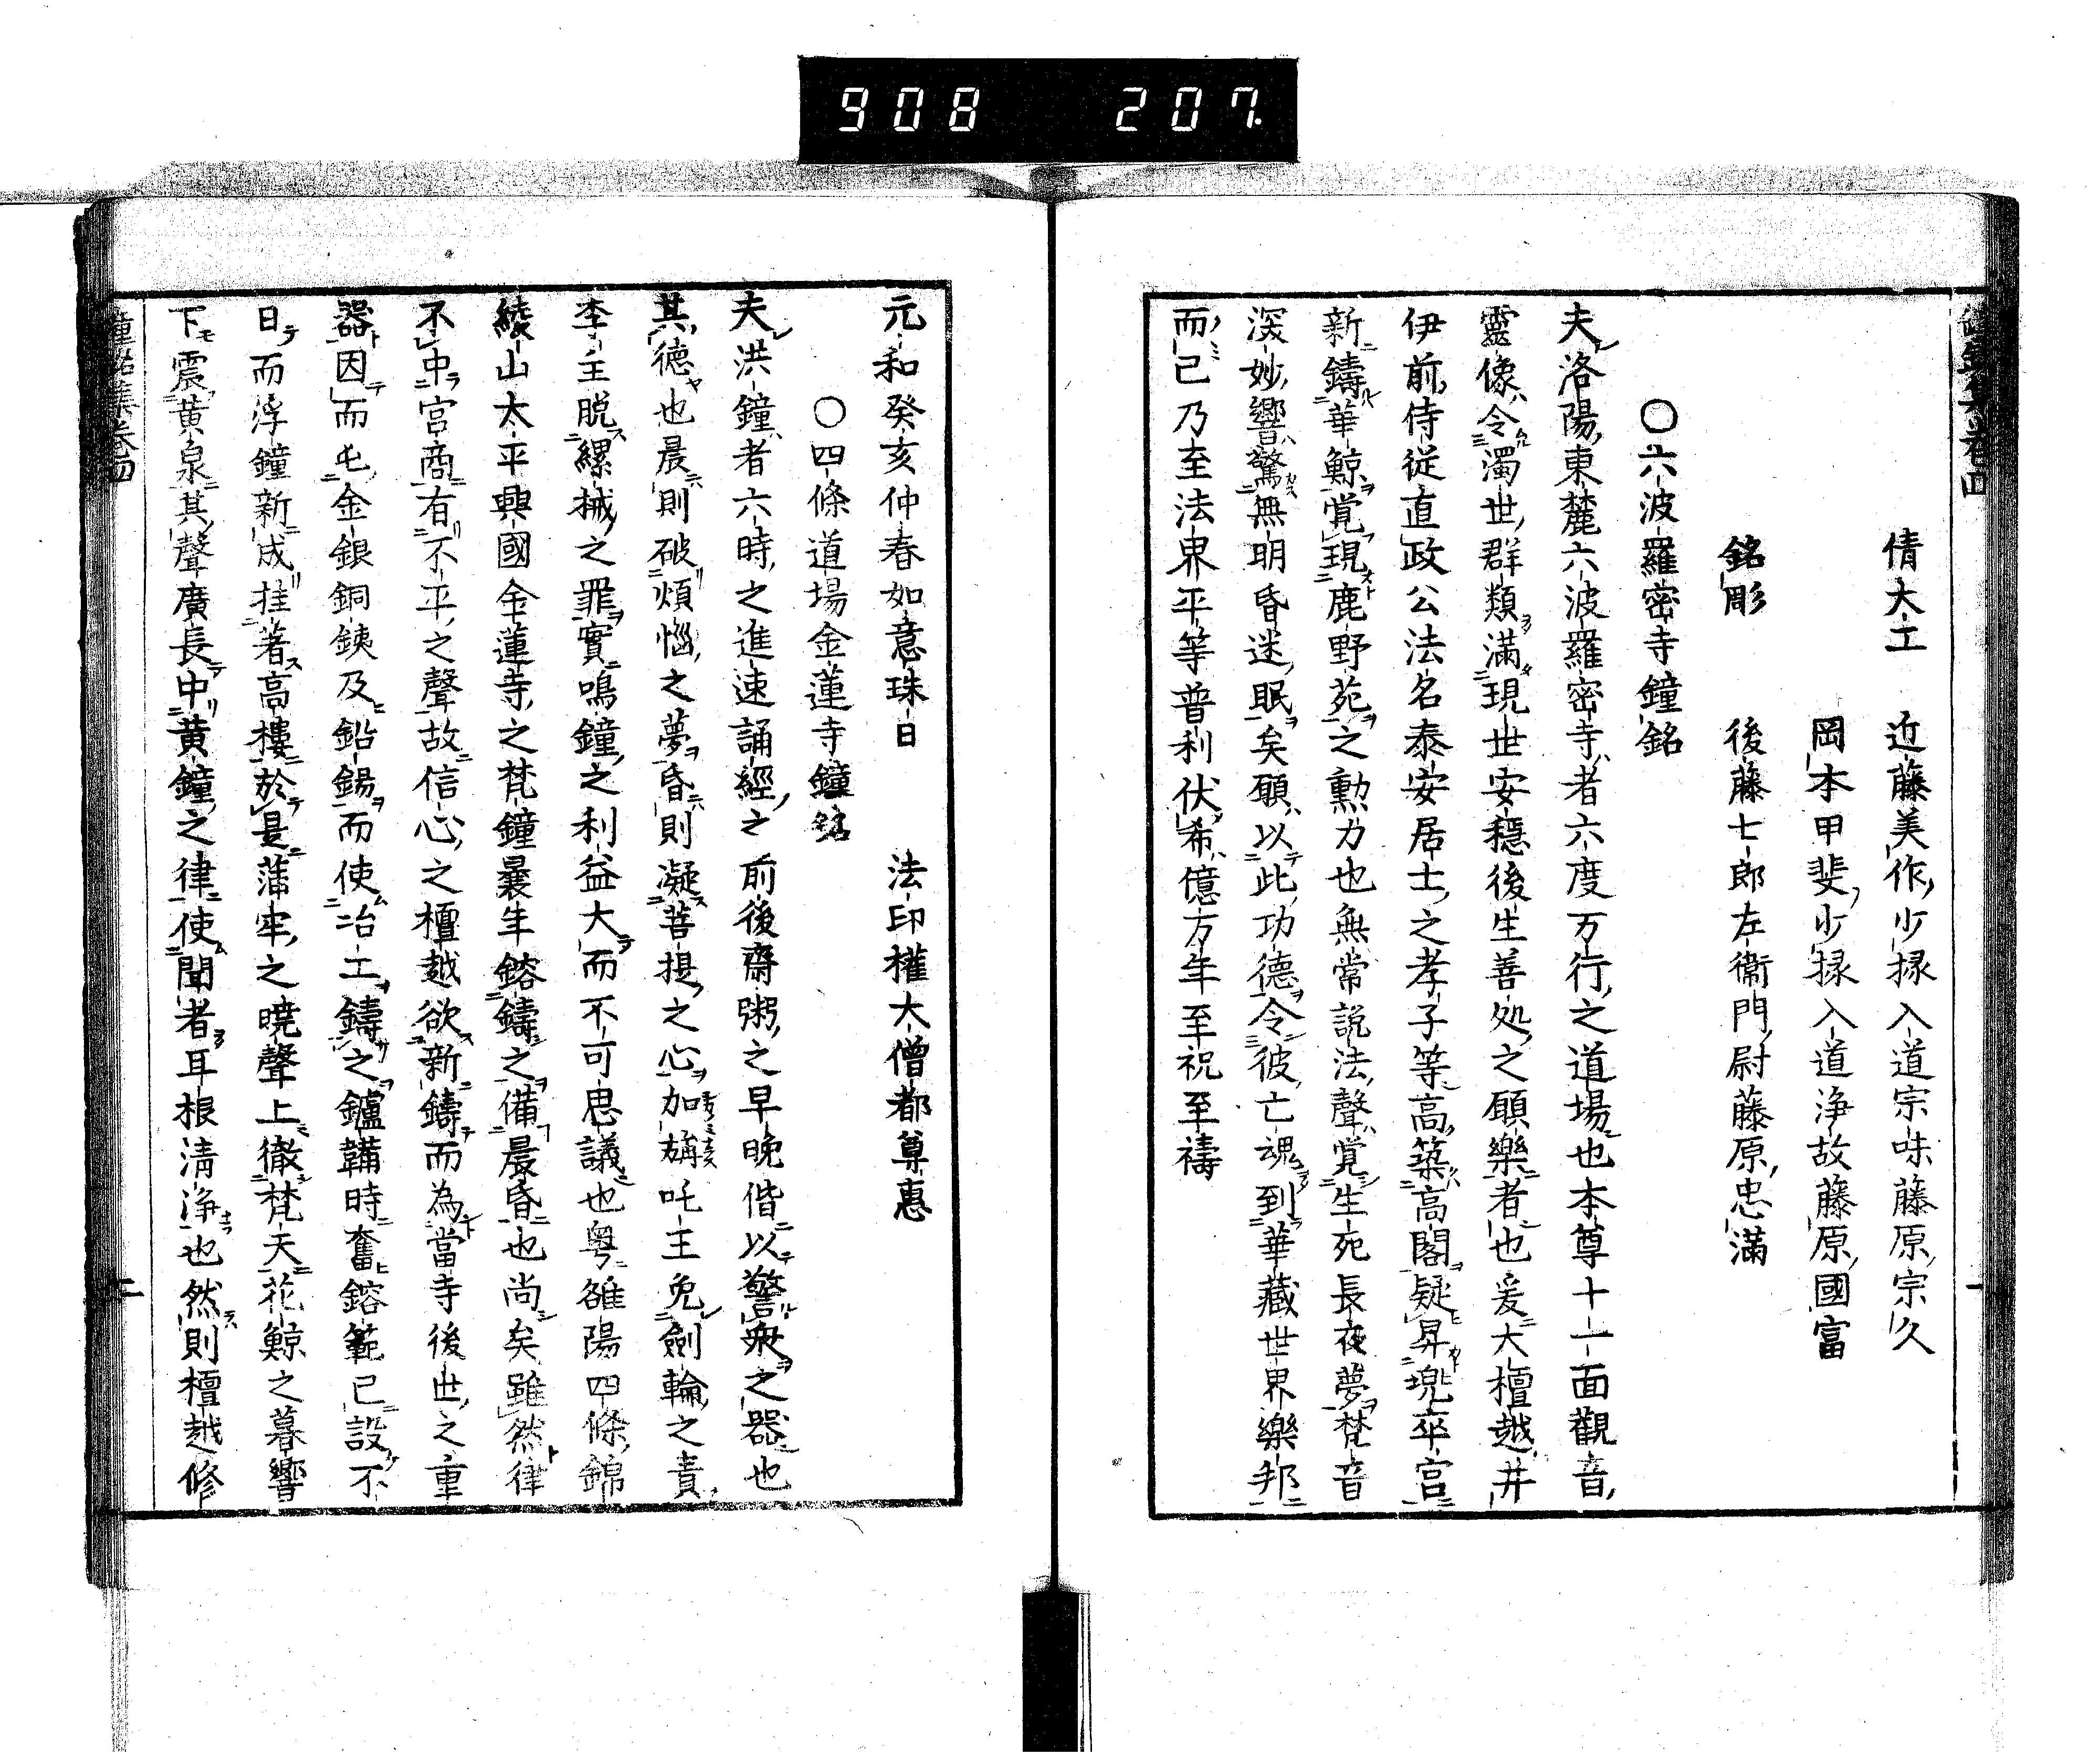 908 207.
鐘銘集卷四
倩大工 近藤美作少掾入道宗味藤原宗久
岡本甲斐少掾入道淨故藤原國富
銘彫 後藤七郎左衞門尉藤原忠滿
○六波羅密寺鐘銘
夫洛陽東麓六波羅密寺者六度万行之道場也本尊十一面觀音
靈像令濁世群類滿現世安穩後生善処之願樂者也爰大檀越井
伊前侍従直政公法名泰安居士之孝子等高築高閣疑昇兜率宮
新鑄華鯨覚現鹿野苑之勲力也無常説法聲覚生死長夜夢梵音
深妙響驚無明昏迷眠矣願以此功德令彼亡魂到華藏世界樂邦
而已乃至法界平等普利伏希億万年至祝至禱
一
元和癸亥仲春如意珠日 法印權大僧都尊惠
○四條道場金蓮寺鐘銘
夫洪鐘者六時之進速誦經之前後齋粥之早晩偕以警衆之器也
其德也晨則破煩惱之夢昏則凝菩提之心加旃吒王免劍輪之責
李主脱縲械之罪實鳴鐘之利益大而不可思議也粤雒陽四條錦
綾山太平興國金蓮寺之梵鐘曩年鎔鑄之備晨昏也尚矣雖然律
不中宮商有不平之聲故信心之檀越欲新鑄而為當寺後世之重
器因而屯金銀銅銕及鉛錫而使冶工鑄之鑪鞴時奮鎔範已設不
日而浮鐘新成挂著高樓於是蒲牢之曉聲上徹梵天花鯨之暮響
下震黄泉其聲廣長中黄鐘之律使聞者耳根清淨也然則檀越修
鐘銘集卷四
二